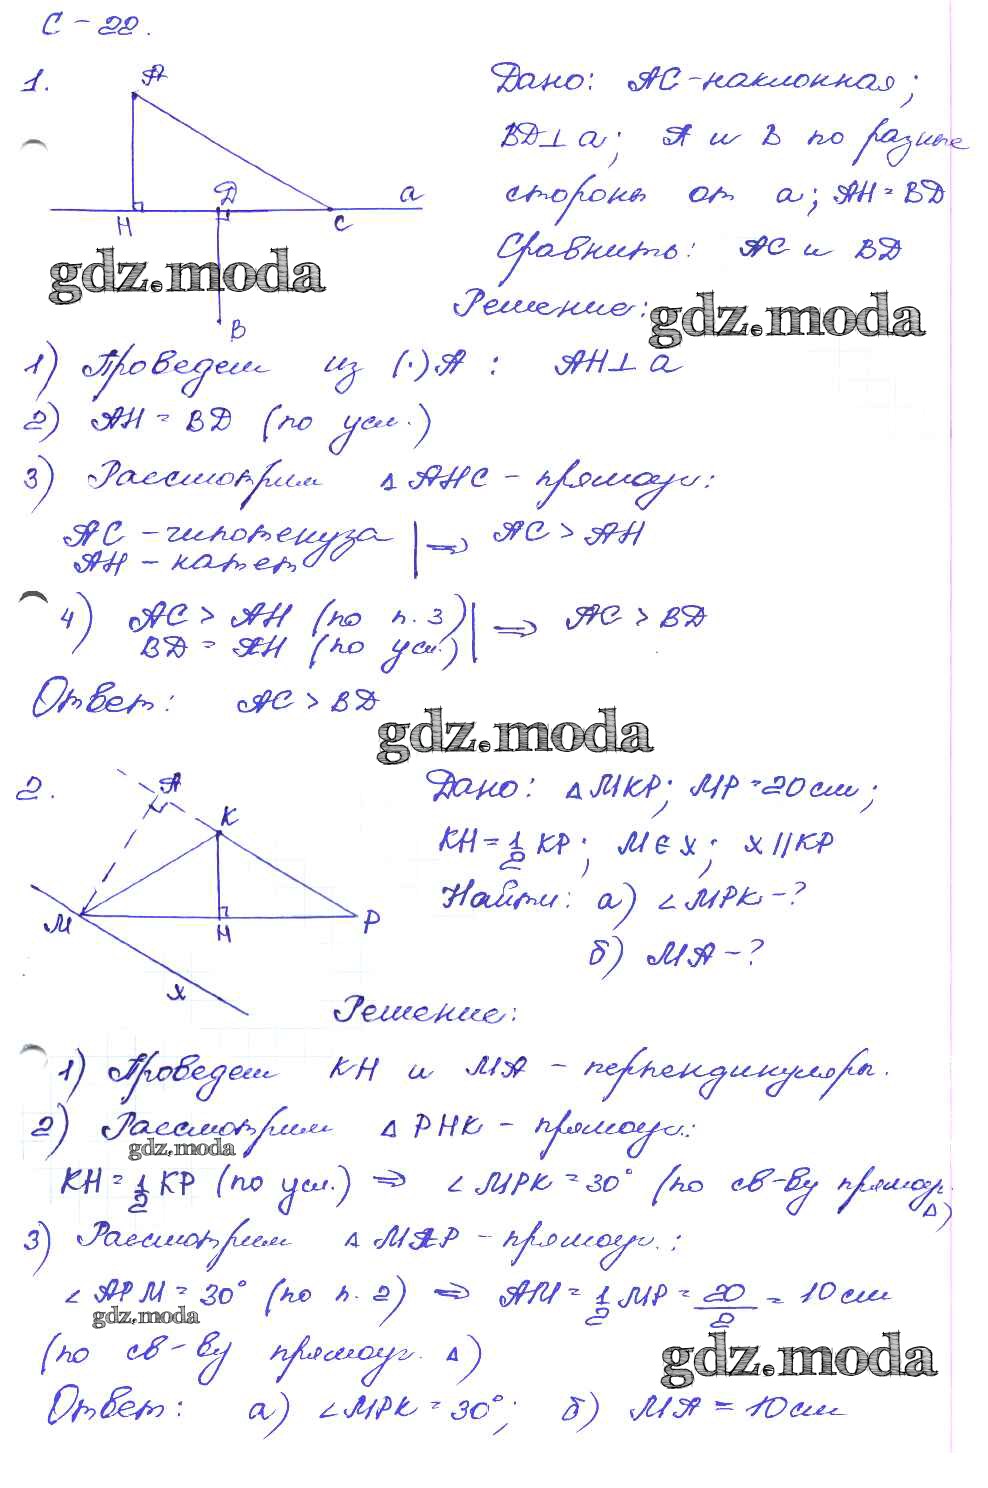 С – 22.
1.
A
H
D
C
a
B
Дано: AC - наклонная;
BD ⊥ a; A и B по разные
стороны от a; AH = BD
Сравнить: AC и BD
gdz.moda
Решение:
gdz.moda
1) Проведем из (·)A : AH ⊥ a
2) AH = BD (по усл.)
3) Рассмотрим △ AHC - прямоуг.:
AC - гипотенуза | ⇒ AC > AH
AH - катет
4) AC > AH (по п. 3) | ⇒ AC > BD
BD = AH (по усл.)
Ответ: AC > BD
gdz.moda
2.
A
K
M
H
P
x
Дано: △ MKP; MP = 20 см;
KH = 1/2 KP; M ∈ x; x || KP
Найти: а) ∠ MPK - ?
б) MA - ?
Решение:
1) Проведем KH и MA - перпендикуляры.
2) Рассмотрим △ PHK - прямоуг.:
gdz.moda
KH = 1/2 KP (по усл.) ⇒ ∠ MPK = 30° (по св-ву прямоуг.
△)
3) Рассмотрим △ MAP - прямоуг.:
∠ APM = 30° (по п. 2) ⇒ AM = 1/2 MP = 20/2 = 10 см
gdz.moda
(по св-ву прямоуг. △)
gdz.moda
Ответ: а) ∠ MPK = 30°; б) MA = 10 см